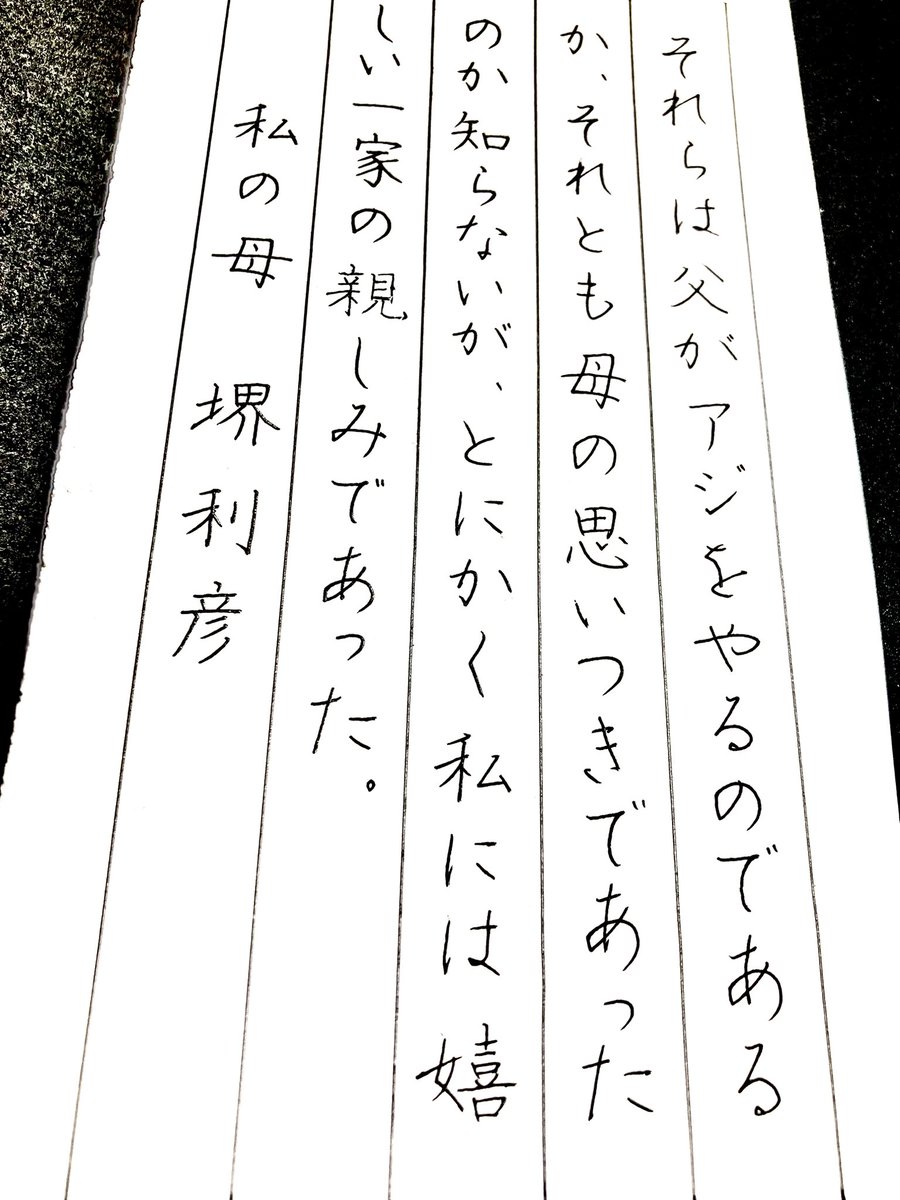 それらは父がアジをやるのである
か、それとも母の思いつきであった
のか知らないが、とにかく私には嬉
しい一家の親しみであった。
私の母 堺利彦